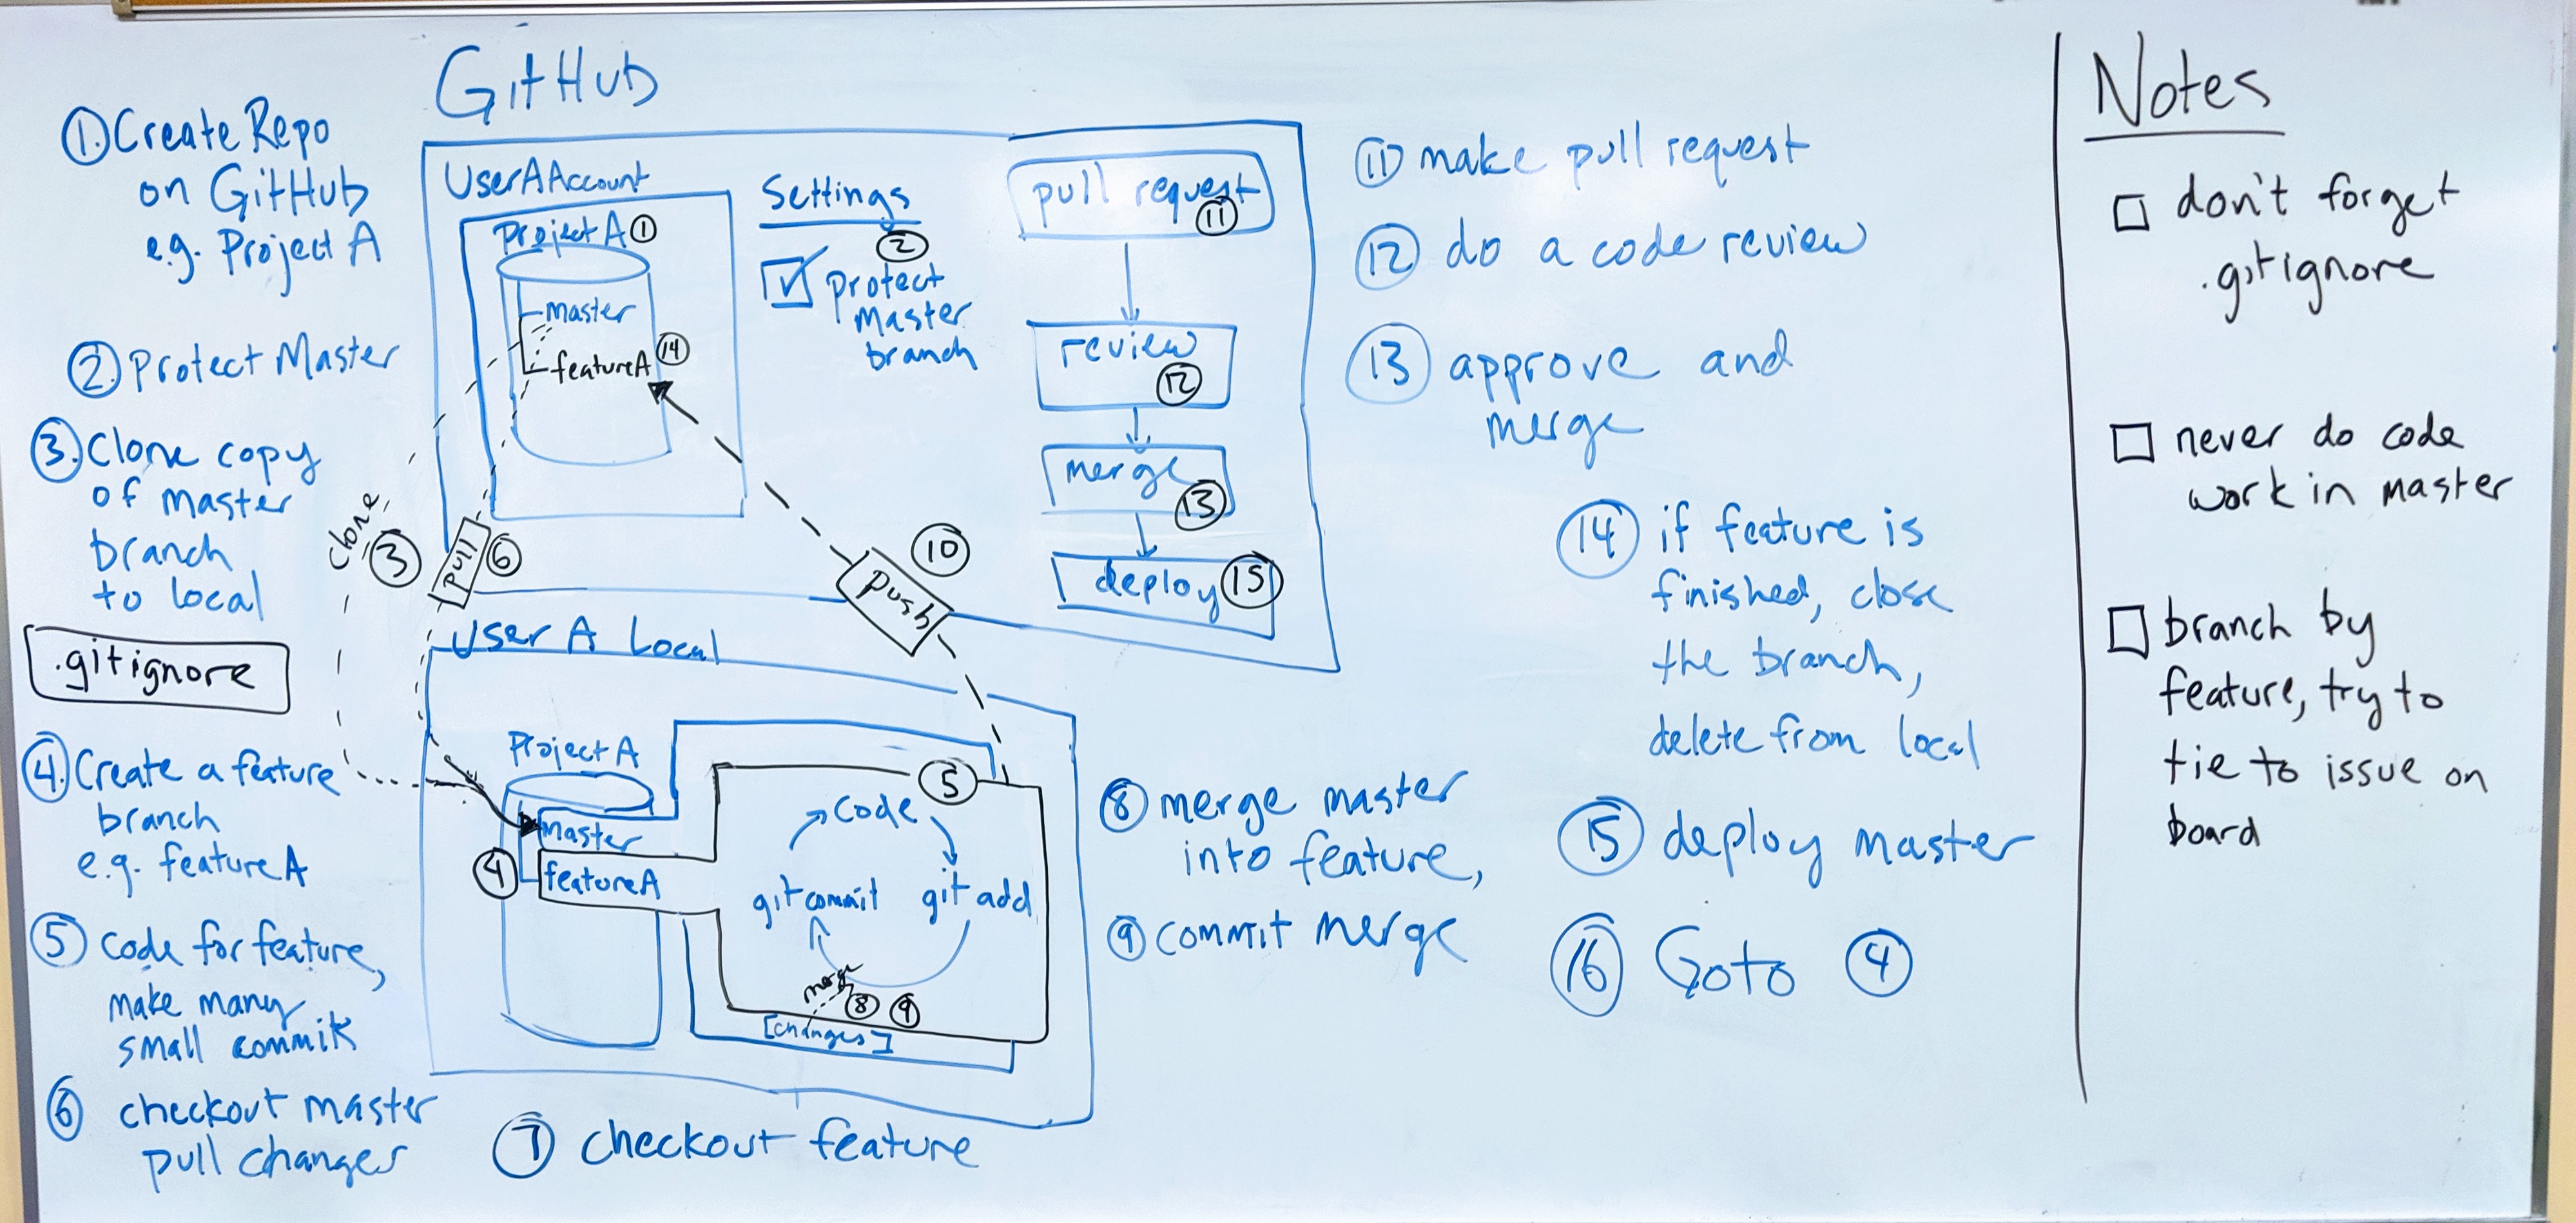 GitHub
① Create Repo
on GitHub
e.g. Project A
② Protect Master
③ Clone copy
of master
branch
to local
.gitignore
④ Create a feature
branch
e.g. featureA
⑤ Code for feature,
make many
small commits
⑥ checkout master
pull changes
User A Account
Project A ①
master
featureA ⑭
Settings
②
protect
Master
branch
pull request
⑪
review
⑫
merge
⑬
deploy ⑮
clone
③
pull ⑥
⑩
push
User A Local
Project A
Master
④ featureA
⑤
Code
git commit
git add
merge
⑧ ⑨
[changes]
⑦ checkout feature
⑧ merge master
into feature,
⑨ commit merge
⑪ make pull request
⑫ do a code review
⑬ approve and
merge
⑭ if feature is
finished, close
the branch,
delete from local
⑮ deploy master
⑯ Goto ④
Notes
don't forget
.gitignore
never do code
work in master
branch by
feature, try to
tie to issue on
board